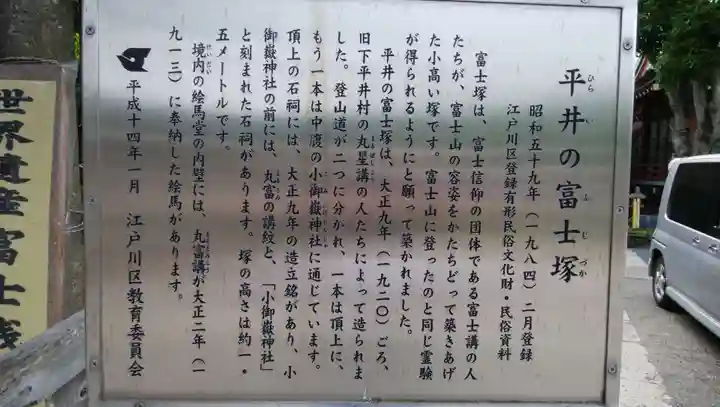 平井の富士塚
ひら い ふ じ づか
昭和五十九年(一九八四)二月登録
江戸川区登録有形民俗文化財・民俗資料
富士塚は、富士信仰の団体である富士講の人
たちが、富士山の容姿をかたちどって築きあげ
た小高い塚です。富士山に登ったのと同じ霊験
が得られるようにと願って築かれました。
平井の富士塚は、大正九年(一九二〇)ごろ、
旧下平井村の丸星講の人たちによって造られま
した。登山道が二つに分かれ、一本は頂上に、
もう一本は中腹の小御嶽神社に通じています。
頂上の石祠には、大正九年の造立銘があり、小
御嶽神社の前には、丸富の講紋と、「小御嶽神社」
と刻まれた石祠があります。塚の高さは約一・
五メートルです。
境内の絵馬堂の内壁には、丸富講が大正二年(一
九一三)に奉納した絵馬があります。
平成十四年一月 江戸川区教育委員会
世界遺産富士浅